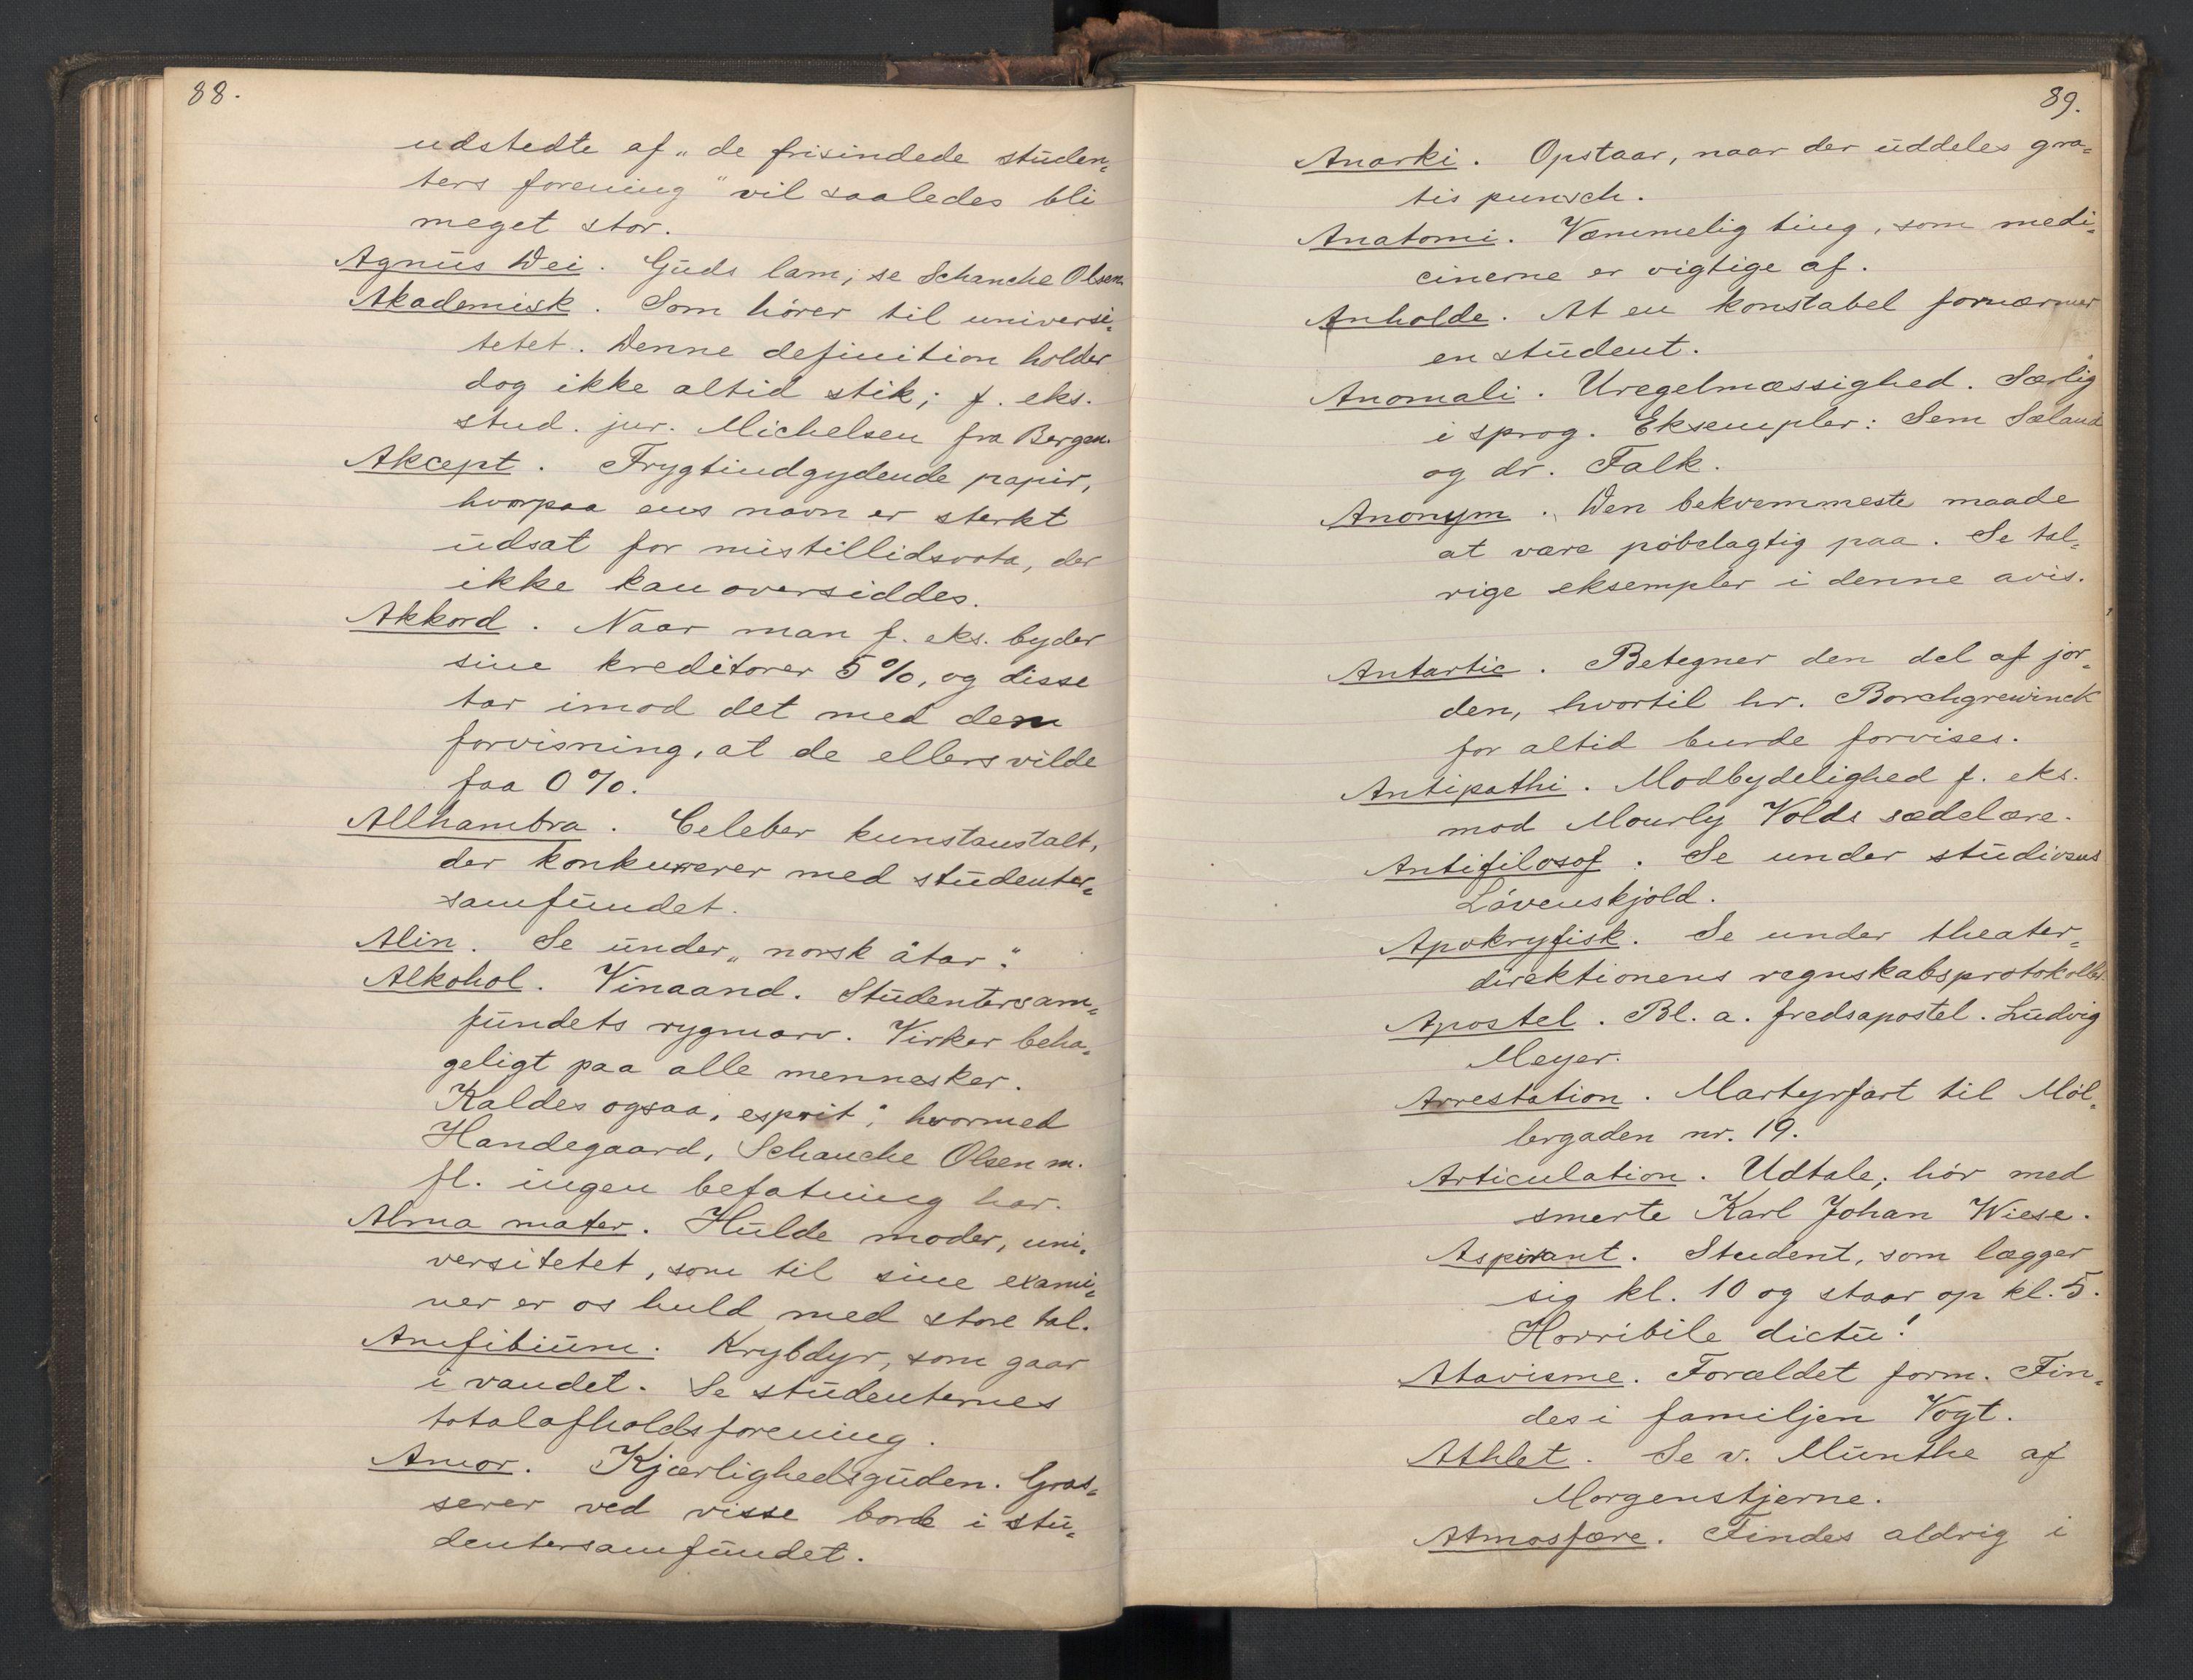 88.
udstedte af „de frisindede studen-
ters forening" vil saaledes bli
meget stor.
Agnus Dei. Guds lam; se Schanche Olsen.
Akademisk. Som hører til universi-
tetet. Denne definition holder
dog ikke altid stik; f. eks.
stud. jur. Michelsen fra Bergen.
Akcept. Frygtindgydende papir,
hvorpaa ens navn er sterkt
udsat for mistillidsvota, der
ikke kan oversiddes.
Akkord. Naar man f. eks. byder
sine kreditorer 5%, og disse
tar imod det med den
forvisning, at de ellers vilde
faa 0%.
Allhambra. Celeber kunstanstalt,
der konkurrerer med studenter-
samfundet.
Alin. Se under „norsk åtar".
Alkohol. Vinaand. Studentersam-
fundets rygmarv. Virker beha-
geligt paa alle mennesker.
Kaldes ogsaa „esprit", hvormed
Handegaard, Schanche Olsen m.
fl. ingen befatning har.
Alma mater. Hulde moder, uni-
versitetet, som til sine exami-
ner er os huld med store tal.
Amfibium. Krybdyr, som gaar
i vandet. Se studenternes
totalafholdsforening.
Amor. Kjærlighedsguden. Gras-
serer ved visse borde i stu-
dentersamfundet.
89.
Anarki. Opstaar, naar der uddeles gra-
tis punsch.
Anatomi. Væmmelig ting, som medi-
cinerne er vigtige af.
Anholde. At en konstabel fornærmer
en student.
Anomali. Uregelmæssighed. Særlig
i sprog. Eksempler: Sem Sæland
og dr. Falk.
Anonym. Den bekvemmeste maade
at være pöbelagtig paa. Se tal-
rige eksempler i denne avis.
Antartic. Betegner den del af jor-
den, hvortil hr. Borchgrewinck
for altid burde forvises.
Antipathi. Modbydelighed f. eks.
mod Mourly Volds sædelære.
Antifilosof. Se under studiosus
Lövenskjold.
Apokryfisk. Se under theater-
direktionens regnskabsprotokoller.
Apostel. Bl. a. fredsapostel. Ludvig
Meyer.
Arrestation. Martyrfart til Möl-
lergaden nr. 19.
Articulation. Udtale; hör med
smerte Karl Johan Wiese.
Aspirant. Student, som lægger
sig kl. 10 og staar op kl. 5.
Horribile dictu!
Atavisme. Forældet form. Fin-
des i familjen Vogt.
Athlet. Se v. Munthe af
Morgenstjerne.
Atmosfære. Findes aldrig i